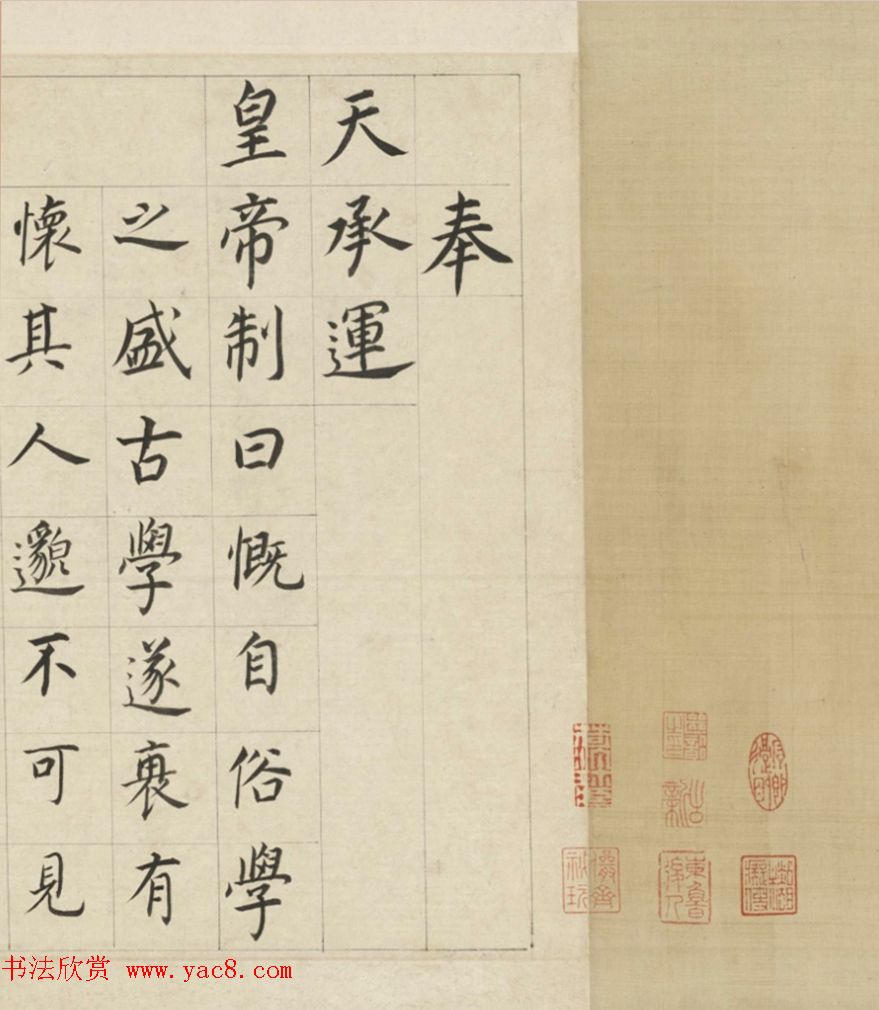 奉
天承運
皇帝制曰慨自俗學
之盛古學遂衰有
懷其人邈不可見
书法欣赏 www.yac8.com